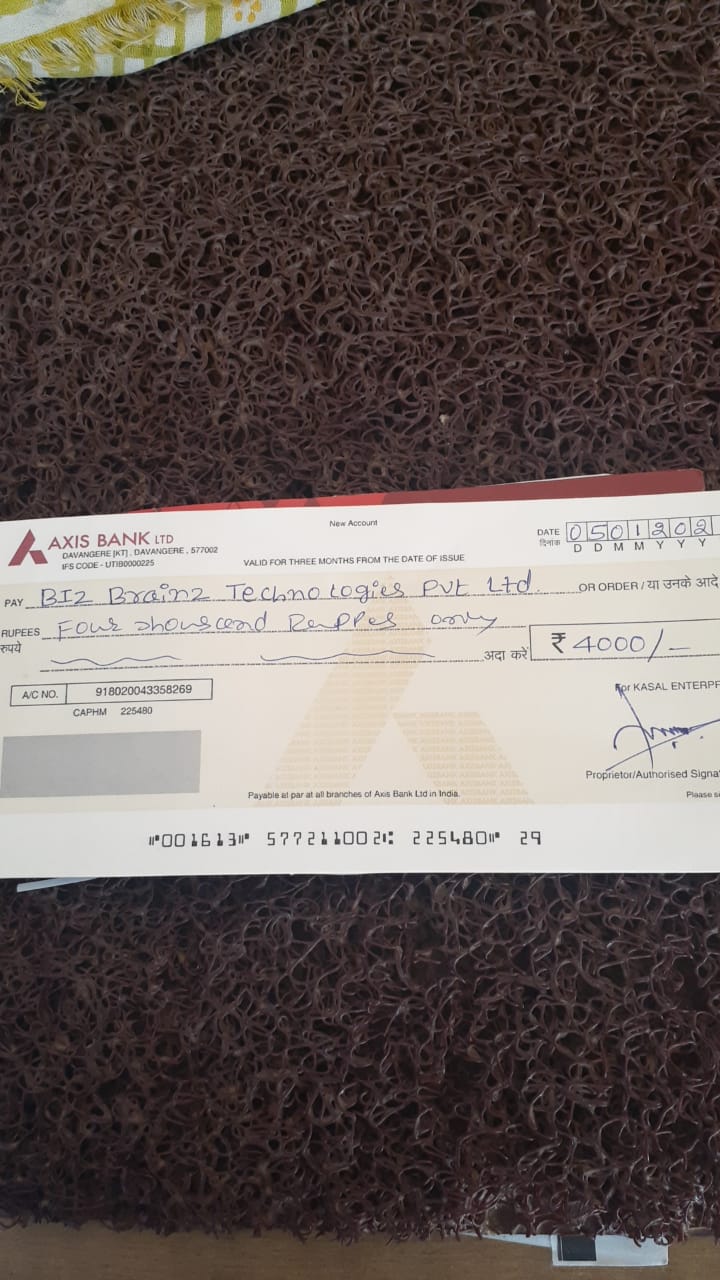 New Account
AXIS BANK LTD
DAVANGERE [KT], DAVANGERE, 577002
IFS CODE - UTIB0000225
VALID FOR THREE MONTHS FROM THE DATE OF ISSUE
DATE 0501202
दिनांक D D M M Y Y Y
PAY BIZ Brainz Technologies Pvt Ltd. OR ORDER / या उनके आदे
RUPEES Four Thousand Rupples only
रुपये अदा करें ₹ 4000/-
A/C NO. 918020043358269
CAPHM 225480
For KASAL ENTERPR
Proprietor/Authorised Signa
Payable at par at all branches of Axis Bank Ltd in India.
Please s
⑈001613⑈ 577211002⑆ 225480⑈ 29